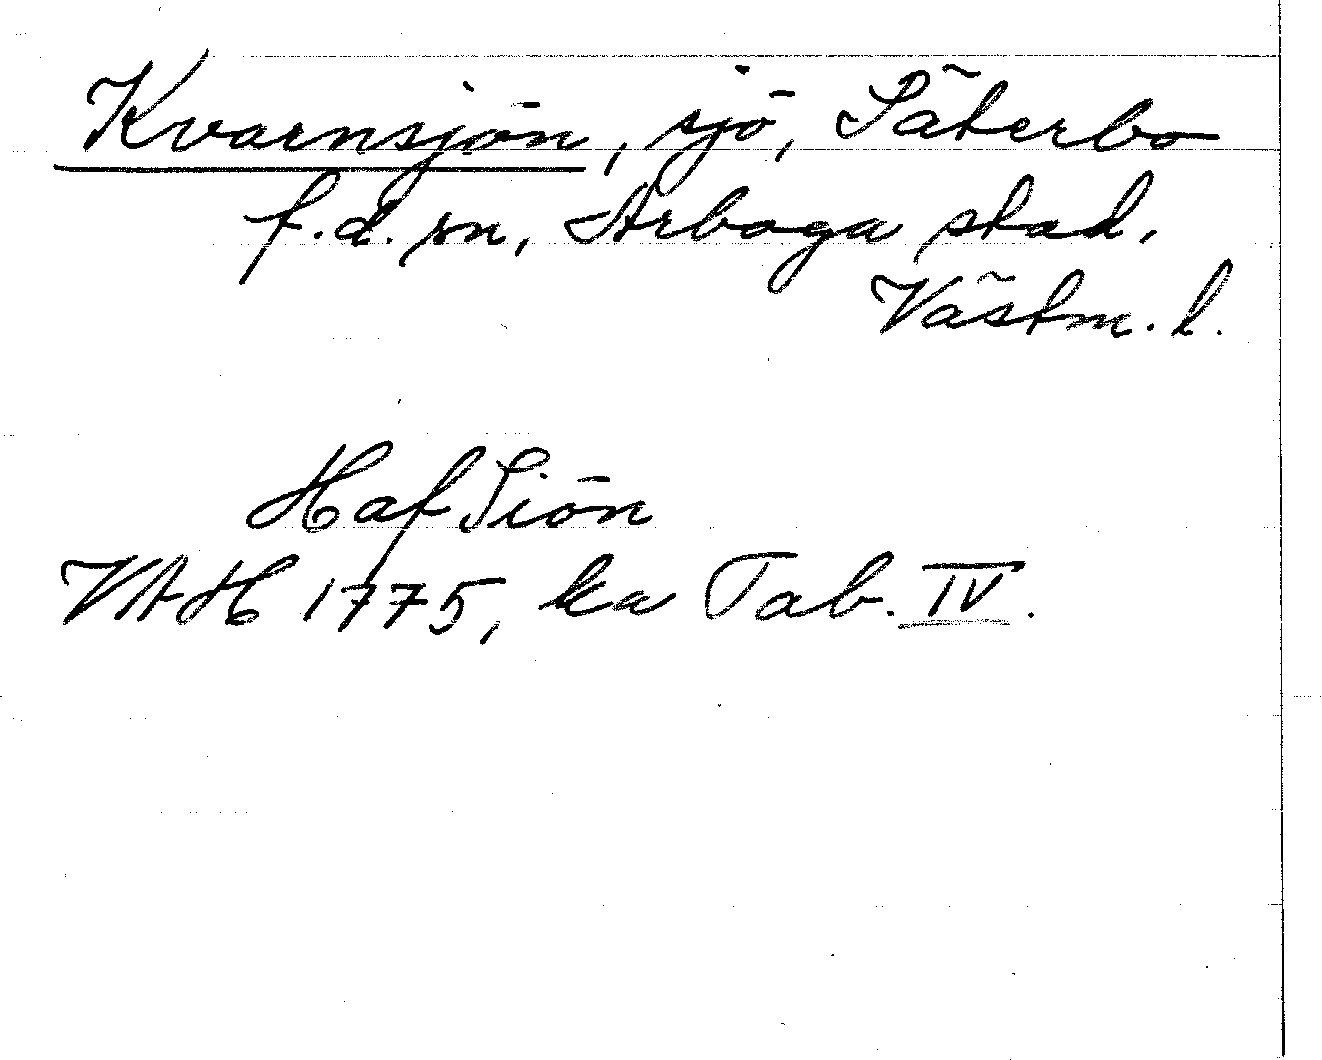 Kvarnsjön, sjö, Säterbo
f.d. sn, Arboga stad,
Västm. l.
Haf Siön
VAH 1775, ka Tab. IV.